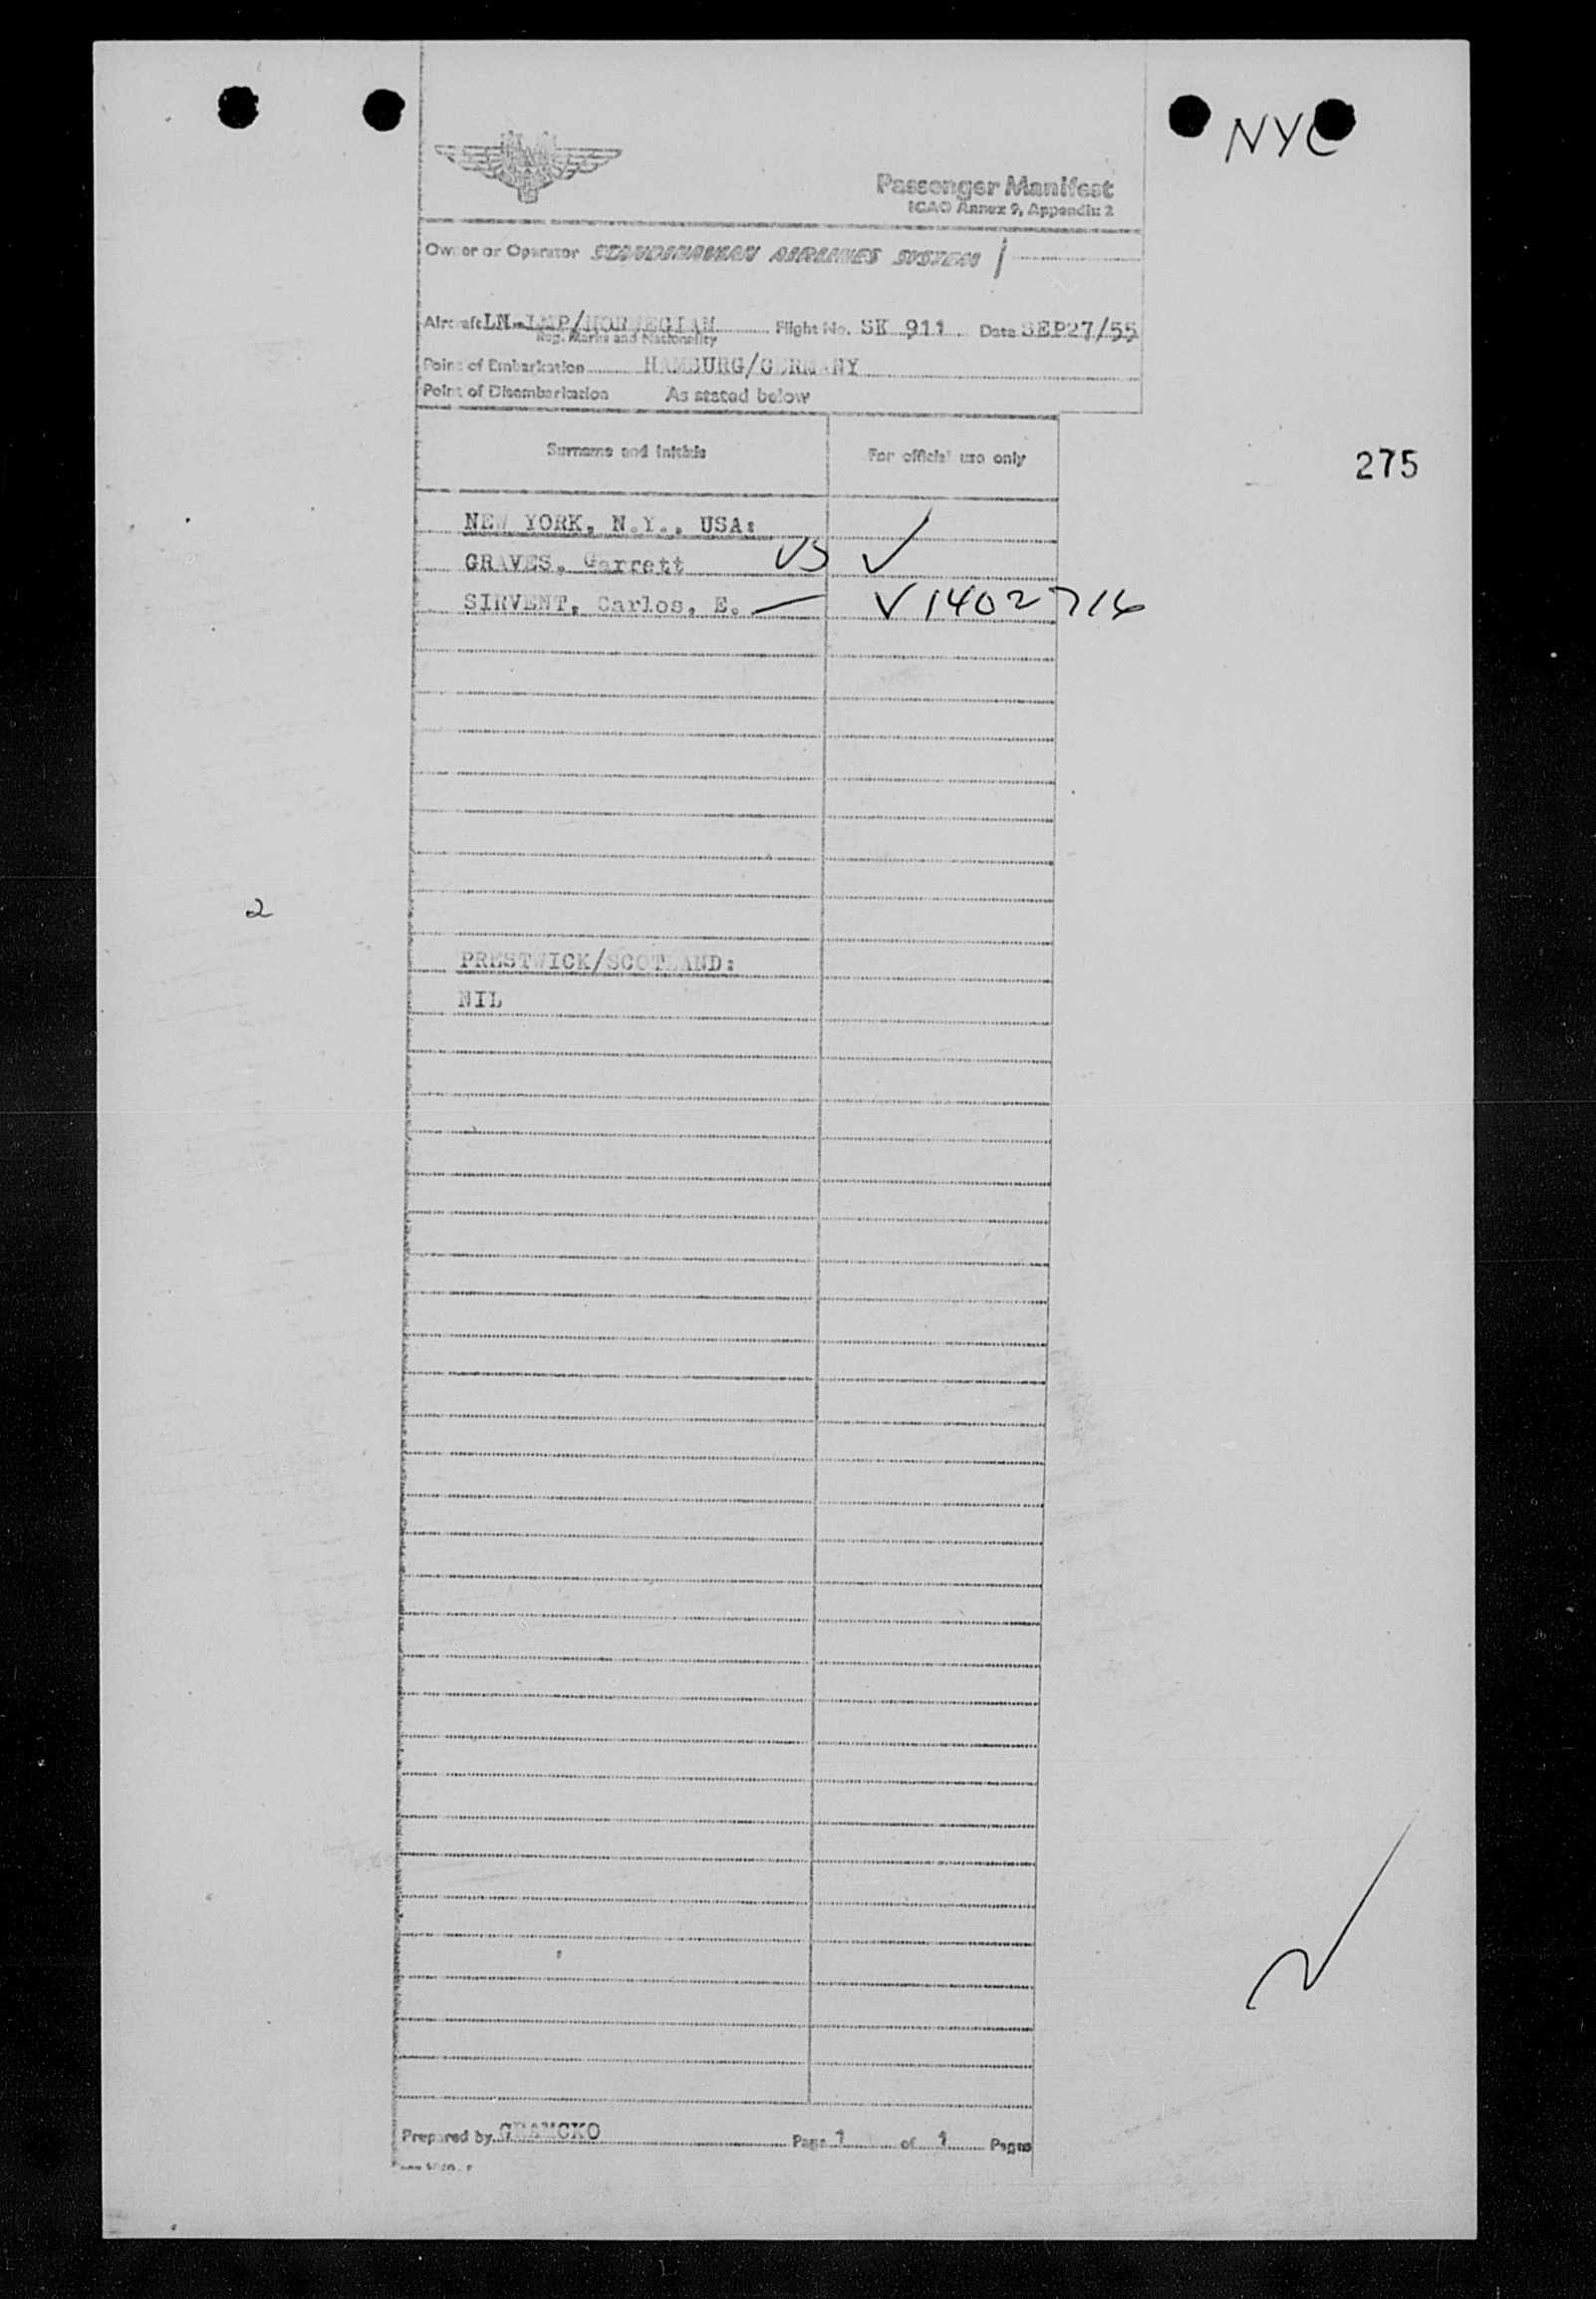 NYC
Passenger Manifest
ICAO Annex 9, Appendix 2
Owner or Operator SCANDINAVIAN AIRLINES SYSTEM
Aircraft LN-LMP/NORWEGIAN Flight No. SK 911 Date SEP27/55
Reg. Marks and Nationality
Point of Embarkation HAMBURG/GERMANY
Point of Disembarkation As stated below
Surname and initials For official use only
275
NEW YORK, N.Y., USA:
GRAVES, Garrett VS ✓
SIRVENT, Carlos, E. — ✓ 1402716
2
PRESTWICK/SCOTLAND:
NIL
Prepared by GRAMCKO Page 1 of 1 Pages